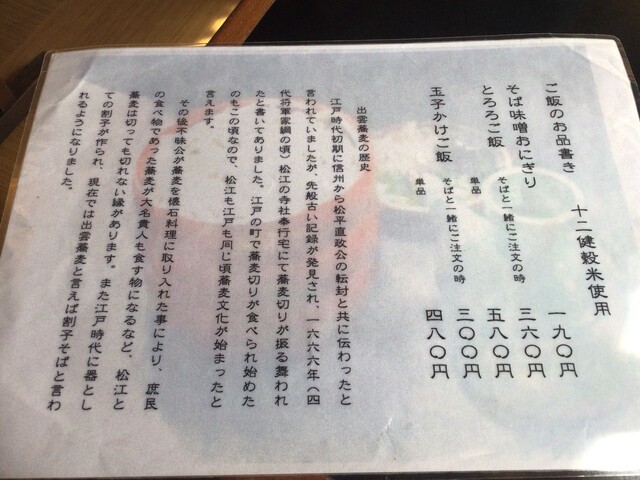 ご飯のお品書き　十二健穀米使用
そば味噌おにぎり　一九〇円
とろろご飯　そばと一緒にご注文の時　三六〇円
単品　五八〇円
玉子かけご飯　そばと一緒にご注文の時　三〇〇円
単品　四八〇円
出雲蕎麦の歴史
江戸時代初期に信州から松平直政公の転封と共に伝わったと
言われていましたが、先般古い記録が発見され、一六六六年（四
代将軍家綱の頃）松江の寺社奉行宅にて蕎麦切りが振る舞われ
たと書いてありました。江戸の町で蕎麦切りが食べられ始めた
のもこの頃なので、松江も江戸も同じ頃蕎麦文化が始まったと
言えます。
その後不昧公が蕎麦を懐石料理に取り入れた事により、庶民
の食べ物であった蕎麦が大名貴人も食す物になるなど、松江と
蕎麦は切っても切れない縁があります。また江戸時代に器とし
ての割子が作られ、現在では出雲蕎麦と言えば割子そばと言わ
れるようになりました。